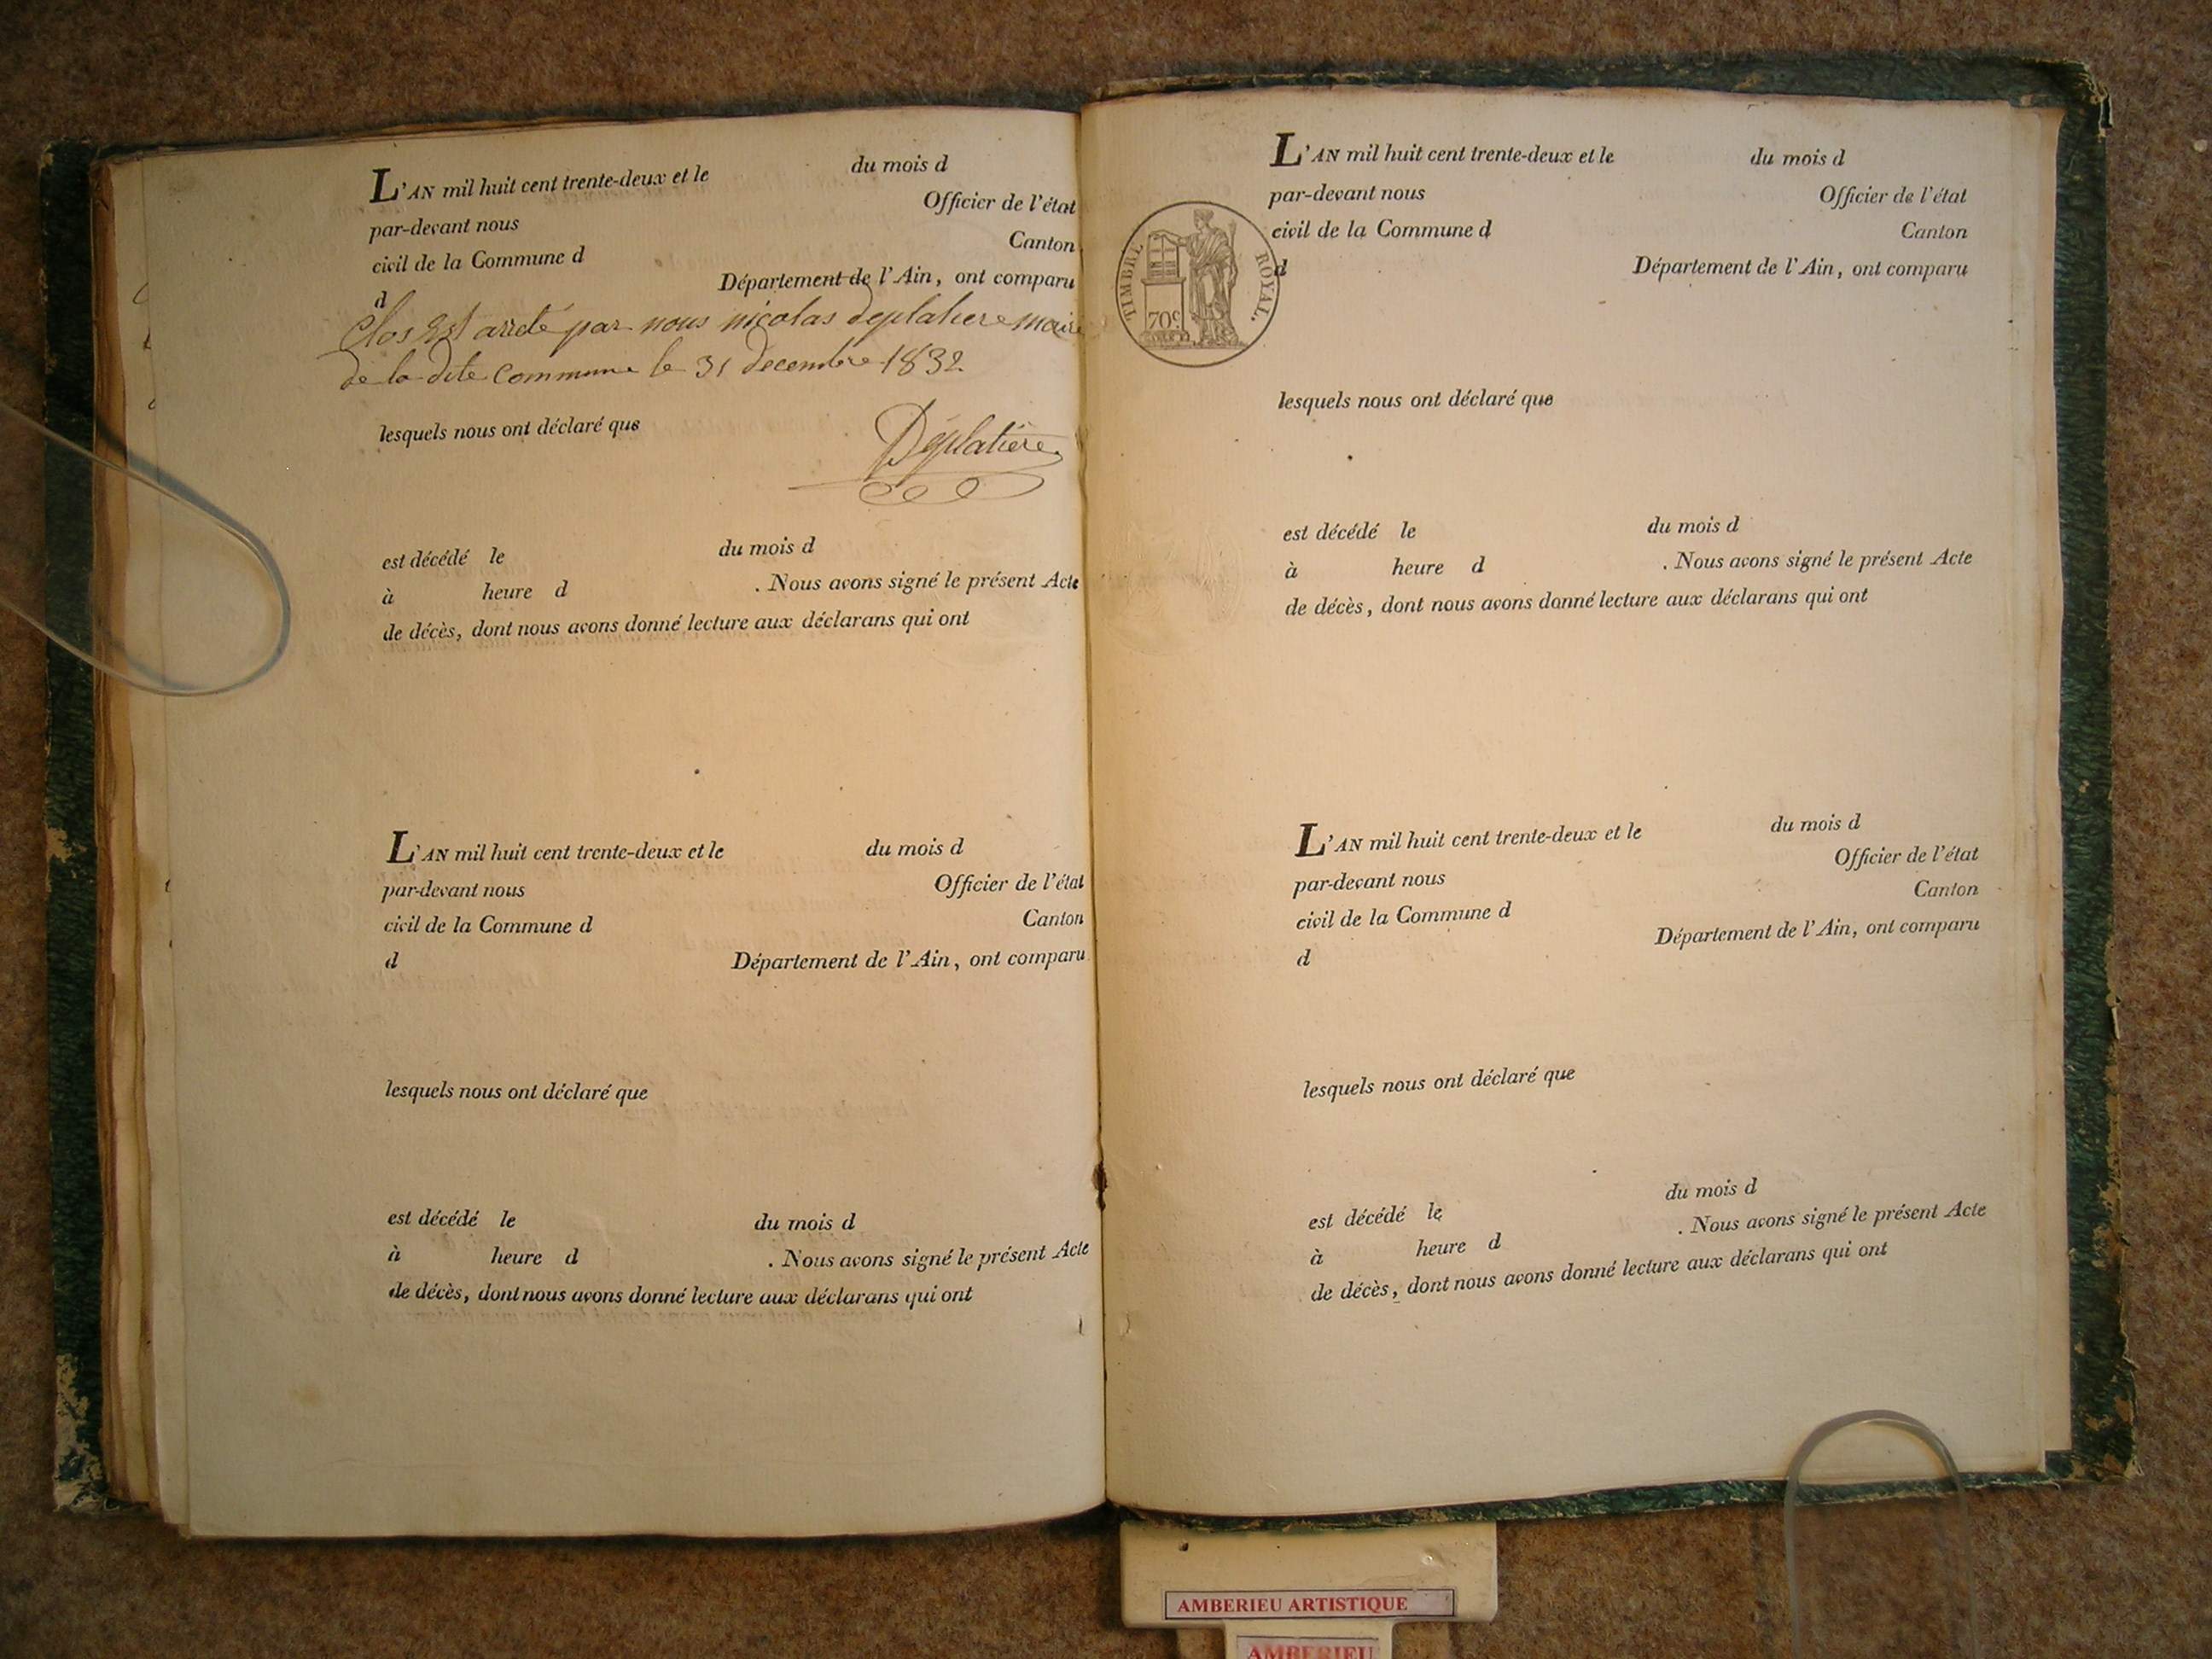 L'AN mil huit cent trente-deux et le du mois d
par-devant nous Officier de l'état
civil de la Commune d Canton
d Département de l'Ain, ont comparu
Clos Est arreté par nous nicolas deplatiere maire
de la dite Commune le 31 decembre 1832
lesquels nous ont déclaré que
Déplatière
est décédé le du mois d
à heure d . Nous avons signé le présent Acte
de décès, dont nous avons donné lecture aux déclarans qui ont
L'AN mil huit cent trente-deux et le du mois d
par-devant nous Officier de l'état
civil de la Commune d Canton
d Département de l'Ain, ont comparu
lesquels nous ont déclaré que
est décédé le du mois d
à heure d . Nous avons signé le présent Acte
de décès, dont nous avons donné lecture aux déclarans qui ont
L'AN mil huit cent trente-deux et le du mois d
par-devant nous Officier de l'état
civil de la Commune d Canton
d Département de l'Ain, ont comparu
TIMBRE ROYAL.
70c
lesquels nous ont déclaré que
est décédé le du mois d
à heure d . Nous avons signé le présent Acte
de décès, dont nous avons donné lecture aux déclarans qui ont
L'AN mil huit cent trente-deux et le du mois d
par-devant nous Officier de l'état
civil de la Commune d Canton
d Département de l'Ain, ont comparu
lesquels nous ont déclaré que
est décédé le du mois d
à heure d . Nous avons signé le présent Acte
de décès, dont nous avons donné lecture aux déclarans qui ont
AMBERIEU ARTISTIQUE
AMBERIEU